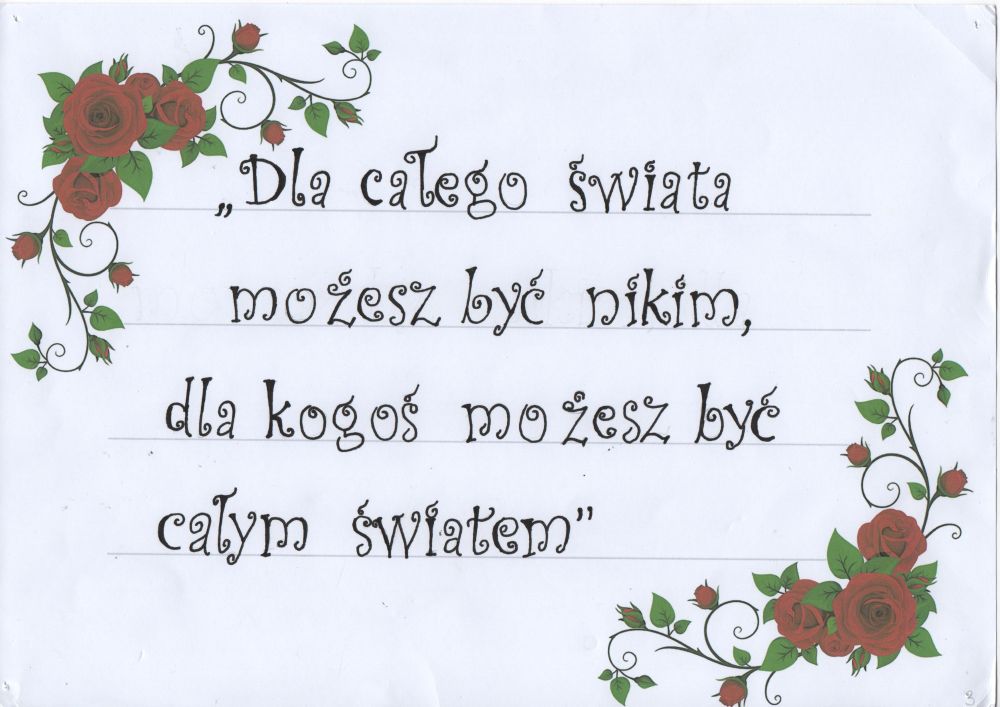 „Dla całego świata
możesz być nikim,
dla kogoś możesz być
całym światem"
3